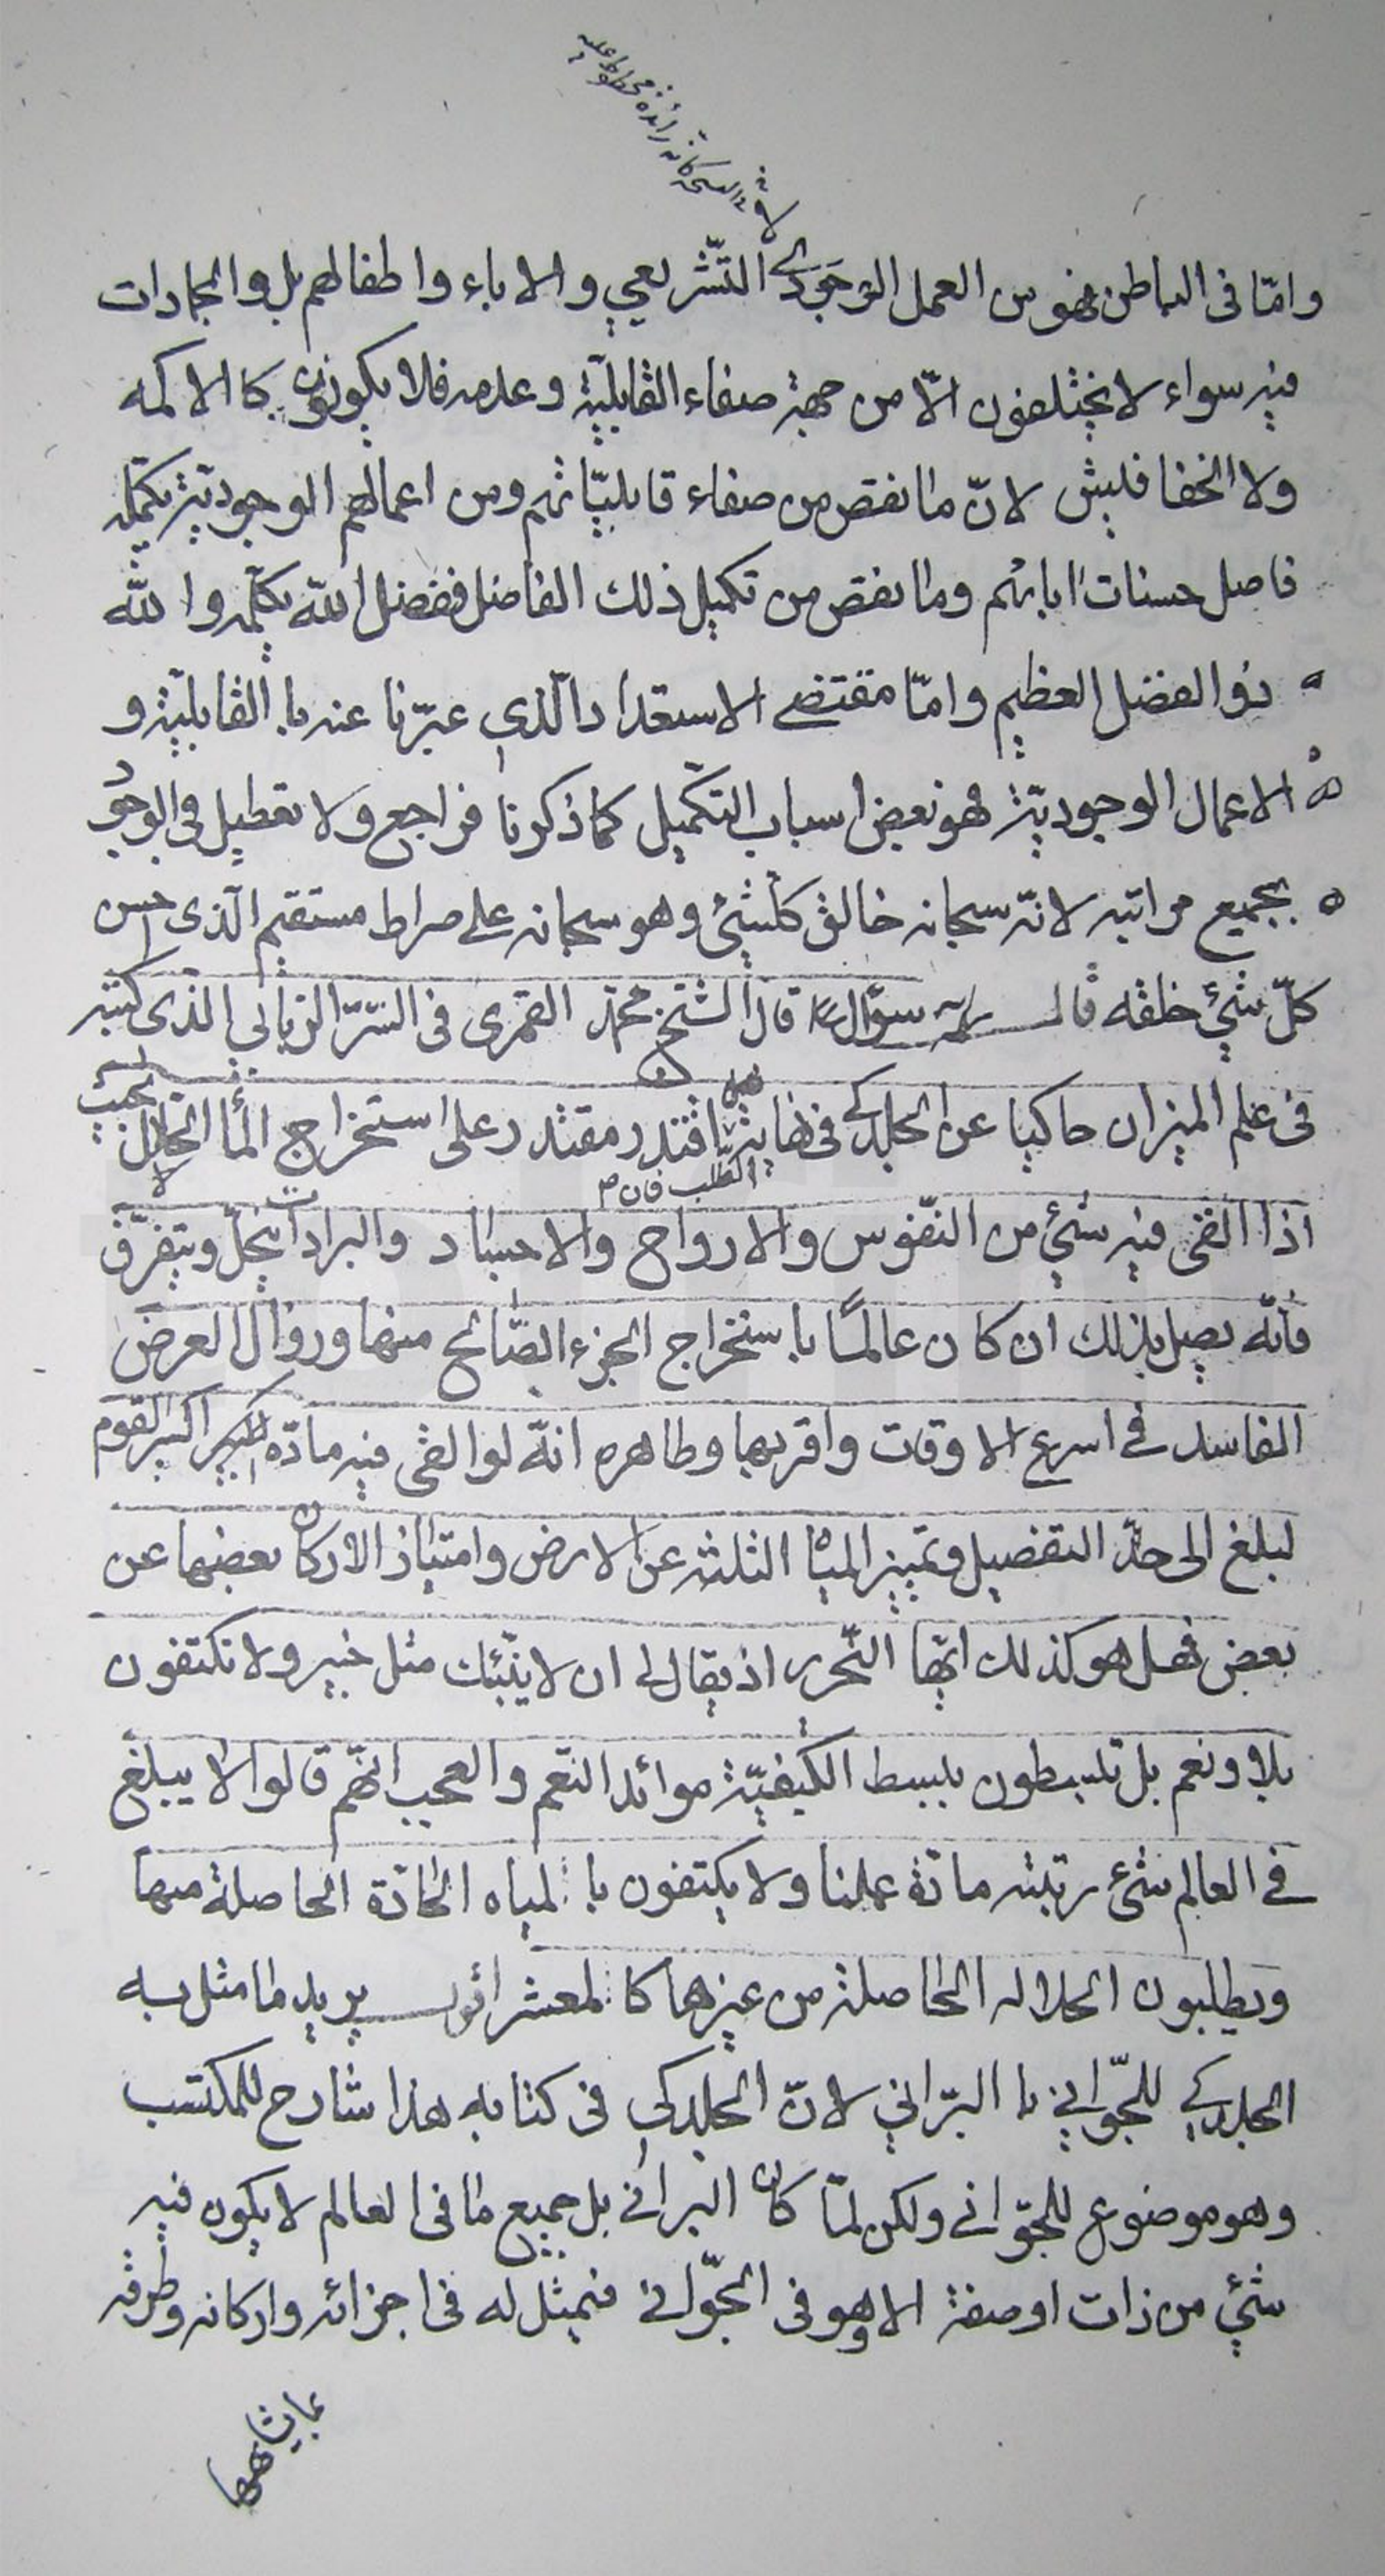 في النسخة كانه زائدة مخطوط عليه
وامّا فى الباطن فهو من العمل الوجودي التّشريعي والاباء واطفالهم بل والجمادات
فيه سواء لا يختلفون الّا من جهة صفاء القابليّة وعدمه فلا يكونون كالاكمه
ولا الخفافيش لانّ ما نقص من صفاء قابليّاتهم ومن اعمالهم الوجوديّة يكمّله
فاضل حسنات ابائهم وما نقص من تكميل ذلك الفاضل ففضل اللّه يكمّله واللّه
ذو الفضل العظيم وامّا مقتضى الاستعداد الّذي عبّرنا عنه بالقابليّة و
الاعمال الوجوديّة فهو بعض اسباب التكميل كما ذكرنا فراجع ولا تعطيل فى الوجود
بجميع مراتبه لانّه سبحانه خالق كلّشئ وهو سبحانه على صراط مستقيم الّذى احسن
كلّ شئ خلقه قال سؤال قال الشيخ محمّد القمرى فى السّرّ الرّبانى الّذى كتبه
فى علم الميزان حاكيا عن الجلدكي فى نهاية الطلب فان اقتدر مقتدر على استخراج الماء الحلال بحيث
اذا القى فيه شئ من النّفوس والارواح والاجساد والبرادات ينحلّ ويتفرّق
فانّه يصل بذلك ان كان عالمًا باستخراج الجزء الصّالح منها وزوال العرض
الفاسد في اسرع الاوقات واقربها وظاهره انّه لو القى فيه مادّة اكسير القوم
لبلغ الى حدّ التفصيل وتميز المياه الثلثه عن الارض وامتياز الاركان بعضها عن
بعض فهل هو كذلك ايّها النّحرير اذ يقال لى ان لا ينبّئك مثل خبير ولا تكتفون
بلا ونعم بل تبسطون ببسط الكيفيّة موائد النعم والعجب انّهم قالوا لا يبلغ
في العالم شئ رتبة مادّة عملنا ولا يكتفون بالمياه الحادّة الحاصلة منها
ويطلبون الحلاله الحاصلة من غيرها كالمعشر اقول يريد ما مثل به
الجلدكي للجّواني بالبرّاني لانّ الجلدكى فى كتابه هذا شارح للمكتسب
وهو موضوع للجّوانى ولكن لمّا كان البرانى بل جميع ما فى العالم لا يكون فيه
شئ من ذات او صفة الا وهو فى الجّوانى فيمثل له فى اجزائه واركانه وطرقه